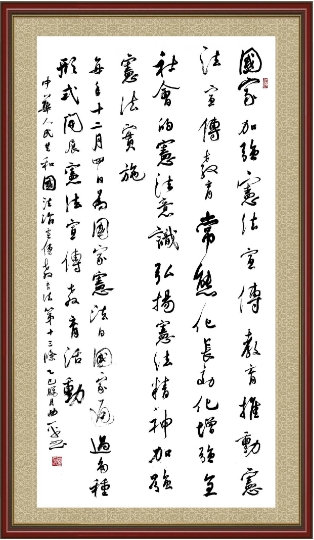 國家加強憲法宣傳教育推動憲
法宣傳教育常態化長効化增強全
社會的憲法意識弘揚憲法精神加強
憲法實施
每年十二月四日為國家憲法日國家通過多種
形式開展憲法宣傳教育活動
中華人民共和國法治宣傳教育法第十三條乙巳